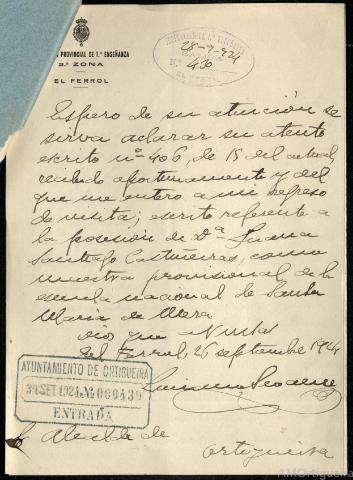 N PROVINCIAL DE 1.ª ENSEÑANZA
2.ª ZONA
EL FERROL
28-9-924
N.º 430
Espero de su atención se
sirva aclarar su atento
escrito nº 406, de 15 del actual,
recibido oportunamente y del
que me entero a mi regreso
de visita; escrito referente a
la posesión de Dª Juana
Santiago Castiñeiras, como
maestra provisional de la
escuela nacional de Santa
Maria de Mera
Dios gue
El Ferrol, 26 septiembre 1924
AYUNTAMIENTO DE ORTIGUEIRA
30 SET 1924 N.º 000439
ENTRADA
Sr Alcalde de
Ortigueira
AMOrtigueira